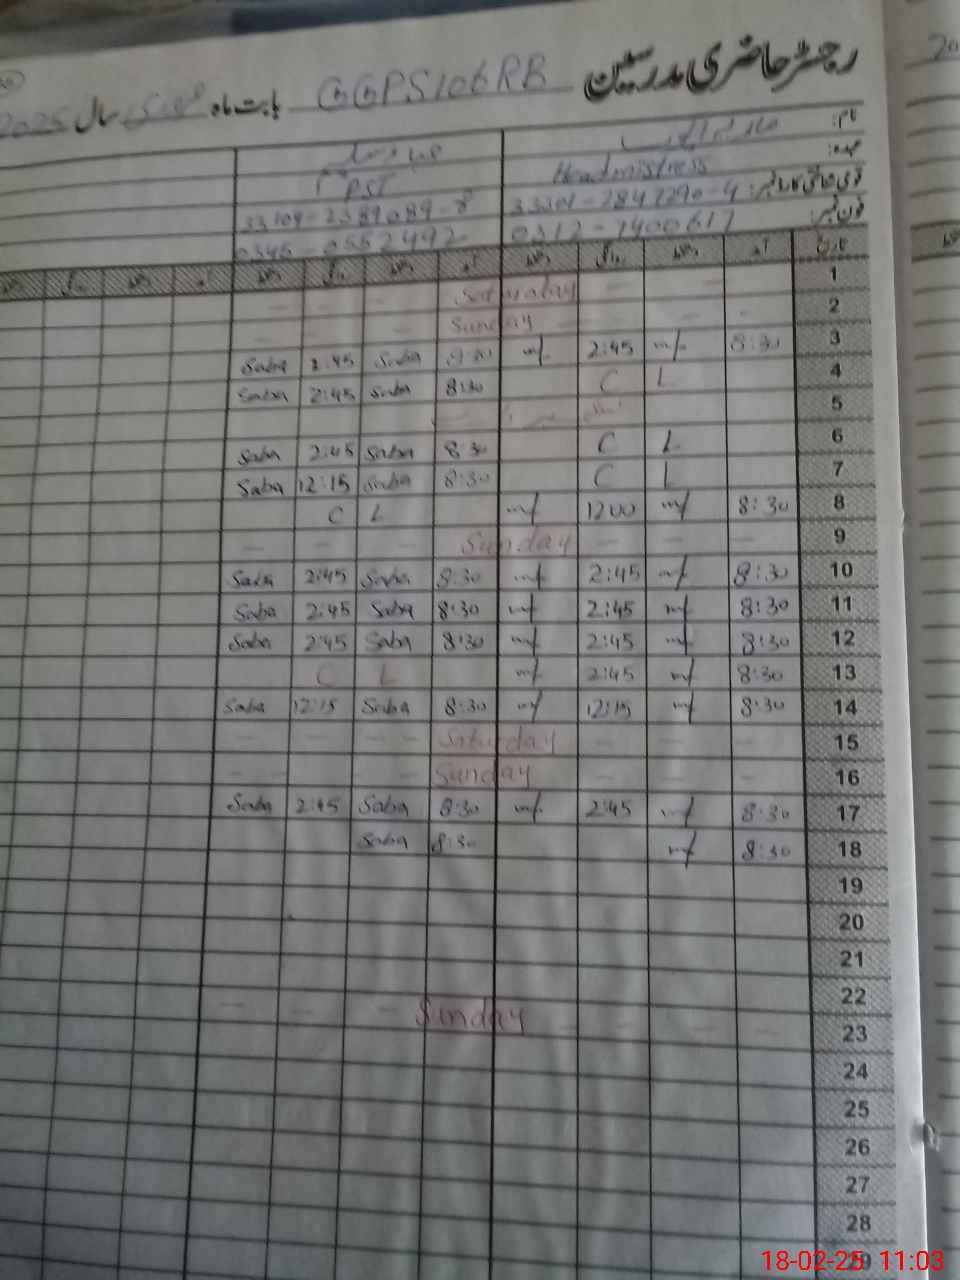 رجسٹر حاضری مدرسین GGPS 106 RB بابت ماہ فروری سال 2025
نام:
عہدہ: Headmistress PST
قومی شناختی کارڈ نمبر: 33301-2847290-4 33104-2389089-8
فون نمبر: 0312-7400617 0345-0552492
تاریخ آمد دستخط روانگی دستخط آمد دستخط روانگی دستخط آمد دستخط روانگی دستخط
1 Saturday
2 Sunday
3 8:30 m/ 2:45 m/ 8:30 Saba 2:45 Saba
4 C L 8:30 Saba 2:45 Saba
5
6 C L 8:30 Saba 2:45 Saba
7 C L 8:30 Saba 12:15 Saba
8 8:30 m/ 1200 m/ C L
9 Sunday
10 8:30 m/ 2:45 m/ 8:30 Saba 2:45 Saba
11 8:30 m/ 2:45 m/ 8:30 Saba 2:45 Saba
12 8:30 m/ 2:45 m/ 8:30 Saba 2:45 Saba
13 8:30 m/ 2:45 m/ C L
14 8:30 m/ 12:15 m/ 8:30 Saba 12:15 Saba
15 Saturday
16 Sunday
17 8:30 m/ 2:45 m/ 8:30 Saba 2:45 Saba
18 8:30 m/ 8:30 Saba
19
20
21
22
23 Sunday
24
25
26
27
28
29
18-02-25 11:03